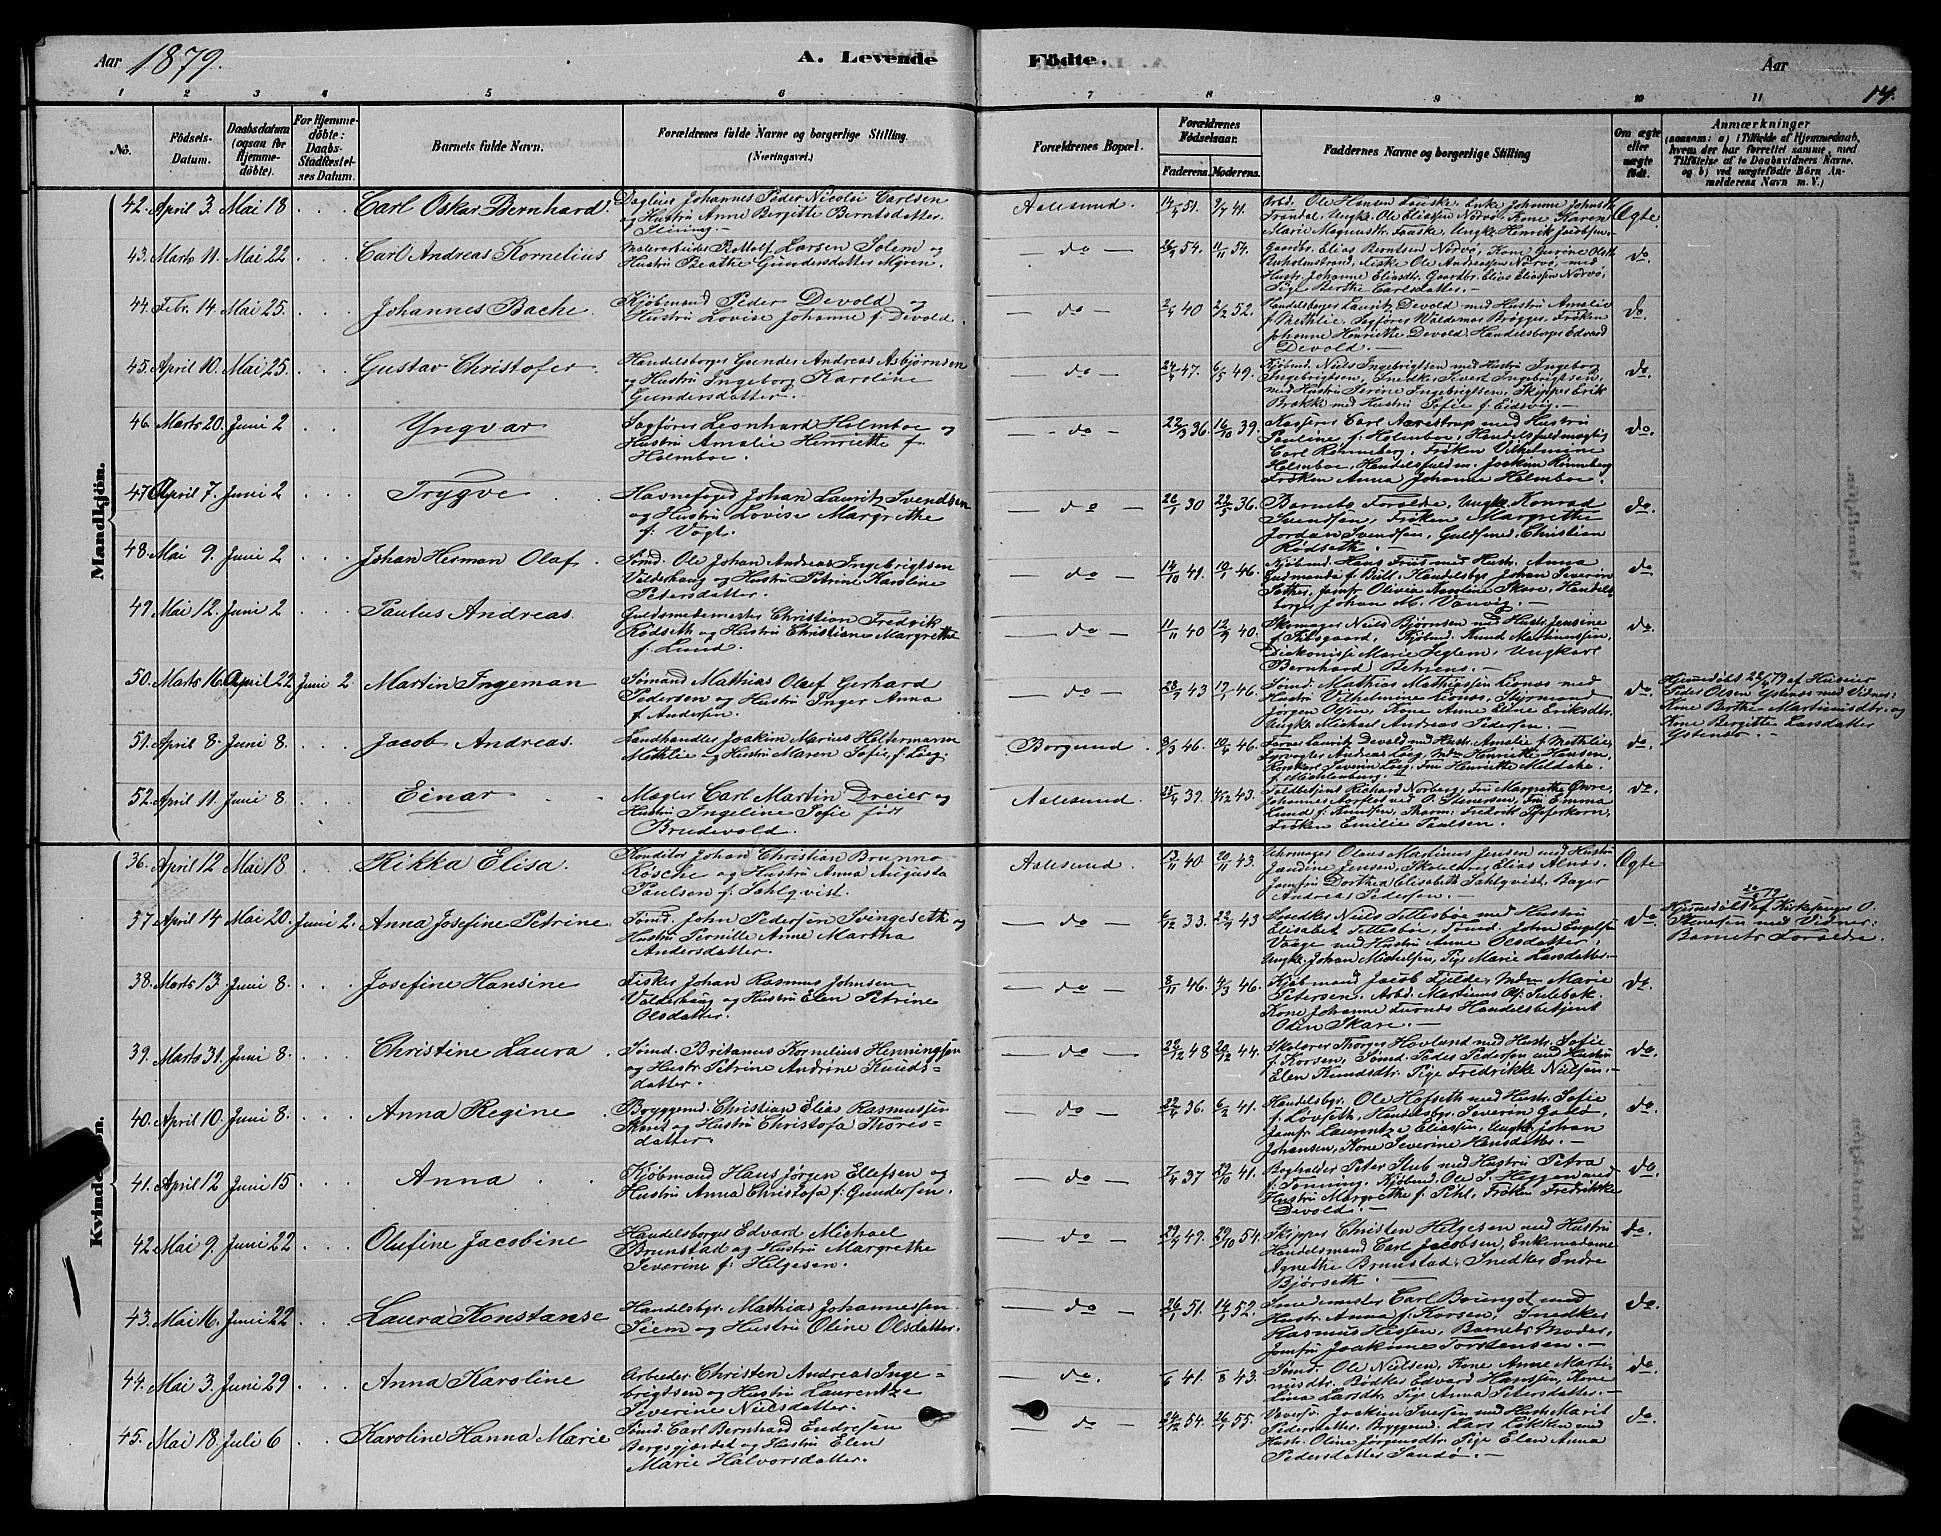 Aar 1879.
A. Levende Födte.
Aar
14.
1 2 3 4 5 6 7 8 9 10 11
No.
Födsels-Datum.
Daabsdatum (ogsaa for Hjemme-döbte).
For Hjemme-döbte: Daabs-Stadfæstel-ses Datum.
Barnets fulde Navn.
Forældrenes fulde Navne og borgerlige Stilling. (Næringsvei.)
Forældrenes Bopæl.
Forældrenes Födselsaar.
Faderens. Moderens.
Faddernes Navne og borgerlige Stilling
Om ægte eller uægte født.
Anmærkninger
(saasom: a) i Tilfælde af Hjemmedaab, hvem der har forrettet samme, med Tilföielse af to Daabsvidners Navne. og b) ved uægtefödte Börn An-melderens Navn m. V.)
Mandkjön.
42. April 3. Mai 18 Carl Oskar Bernhard. Daglein Johannes Peder Nicolai Carlsen
og Hustru Anne Birgitte Berntsdatter
Aalesund. 41. Ægte.
43. Marts 11. Mai 22 Carl Andreas Kornelius Malerarbeider Larsen Solem og
Hustru Beathe Gundersdatter Myren.
do 26/4 54. 11/11 54. Gaardbr. Elias Berntsen Nörvö, Kone Gurine
Hustr. Johanne Eliasdtr. Gaardbr. Elias Eliassen Nörvö,
Pige Berthe Carlsdatter. do.
44. Febr. 14. Mai 25. Johannes Bache. Kjöbmand Peder Devold og
Hustru Lovise Johanne f. Devold.
do 40 52. Handelsborger Lauritz Devold med Hustru Amalie
f. Methlie, Sagförer Waldemar Brögger, Fröken
Johanne Henriette Devold, Handelsborger Edvard
Devold. do.
45. April 10. Mai 25. Gustav Christofer. Handelsborger Gunder Andreas Asbjörnsen
og Hustru Ingeborg Karoline
Gundersdatter.
do 24/4 47. 6/5 49. Kjöbmd. Niels Ingebrigtsen med Hustru Ingeborg
Ingebrigtsen, Snedker Sivert Ingebrigtsen,
med Hustru Serine Ingebrigtsen, Skipper Erik
Brække med Hustru Sofie f. Eidsvig. do
46. Marts 20. Juni 2 Yngvar Sagförer Leonhard Holmboe og
Hustru Amalie Henriette f.
Holmboe.
do 22/3 36. 16/10 39. Kasserer Carl Nærestrup med Hustru
Pauline f. Holmboe, Handelsfuldmægtig
Carl Rönneberg, Fröken Vilhelmine
Holmboe, Handelsfuldm. Joakim Rönneberg
Fröken Anna Johanne Holmboe. do.
47 April 7. Juni 2 Trygve Havnefoged Johan Lauritz Svendsen
og Hustru Lovise Margrethe
f. Vogt.
do 30 22/5 36. Barnets Forældre, Ungk. Konrad
Svendsen, Fröken Margrethe
Jordan Svendsen, Guldsmed Christian
Rödseth. do.
48. Mai 9. Juni 2 Johan Herman Olaf. Sömd. Ole Johan Andreas Ingebrigtsen
Valderhaug og Hustru Petrine Karoline
Petersdatter.
do 14/10 49. 10/1 46. Kjöbmd. Hans Friis med Hustr. Anna
Gudmunda f. Bull, Handelsbgr. Johan Severin
Jomfr. Olivia Karoline Skare, Handels-
borger Johan M. Vanvig. do
49. Mai 12. Juni 2 Paulus Andreas. Guldsmedemester Christian Fredrik
Rödseth og Hustru Christiane Margrethe
f. Lund.
do 11/11 40 12/9 40. Skomager Niels Björnsen med Hustr. Jensine
f. Kjöbmd. Knud Martinussen,
Diakonisse Marie Seglem, Ungkarl
Bernhard Behrens. do.
50. Marts 16. April 22 Juni 2. Martin Ingeman Sömand Mathias Olaf Gerhard
Pedersen og Hustru Inger Anna
f. Andersen.
do 28/4 43 17/1 46. Sömd. Mathias Mathiassen Lionæs med
Hustru Vilhelmine Lionæs, Styrmand
Jörgen Olsen, Kone Anne Eline Eriksdtr.
Ungk. Michael Andreas Pedersen. do. Hjemmedöbt 22/4 79 af Husmor
Peder Olsen Ystenæs med Vidner:
Kone Berthe Martinusdtr. og
Kone Bergitte Larsdatter
Ystenæs.
51. April 8. Juni 8. Jacob Andreas. Landhandler Joakim Marius Holtermann
Methlie og Hustru Maren Sofie f. Lög.
Borgund. 9/3 46. 46. Lauritz Devold med Hustr. Amalie f. Methlie,
Andreas Löeg, Mdm. Henriette Hansen,
Severin Löeg, Fru Henriette Meldahl
f. Michlenburg. do.
52. April 11. Juni 8 Einar Mægler Carl Martin Dreier og
Hustru Ingeline Sofie född
Brudevold.
Aalesund. 25/4 39. 43. Toldbetjent Richard Norberg, Fru Margrethe Övre,
Johannes Aarflot ved O. Stenersen, Fru Emma
Lund f. Knudsen, Pharm. Fredrik Peferkorn,
Fröken Emilie Paulsen. do.
Kvindekjön.
36. April 12 Mai 18 Rikka Elisa. Konditor Johan Christian Brunno
Rösche og Hustru Anna Augusta
Paulsen f. Sahlqvist.
Aalesund. 13/11 40 20/11 43. Uhrmager Olaus Martinus Jensen med Hustru
Jandine Jensen, Skolelærer Elias Alnæs,
Jomfru Dorthea Elisabeth Sahlqvist, Bager
Andreas Pedersen. Ægte
37 April 14 Mai 20. Juni 2. Anna Josefine Petrine Sömd. John Pedersen Svingeseth og
Hustru Pernille Anne Martha
Andersdatter.
do 6/12 33. 22/9 43 Snedker Niels Sillesböe med Hustru
Elisabet Sillesböe, Sömd. John Engelsen
Vaage med Hustru Anne Olsdatter,
Ungk. Johan Michelsen, Pige Marie Larsdatter. do. Hjemmedöbt 20/5 79 af Kirkesanger O.
Stenersen med Vidner:
Barnets Forældre.
38. Marts 13. Juni 8. Josefine Hansine Fisker Johan Rasmus Johnsen
Valderhaug og Hustru Elen Petrine
Olsdatter.
do 8/11 46. 4/3 46. Kjöbmand Jacob Fjelde, Mdm. Marie
Petersen, Arbd. Martinus Ols. Sulebak,
Kone Johanne Handelsbetjent
Odin Skare. do.
39. Marts 31. Juni 8. Christine Laura Sömd. Britanus Kornelius Henningsen
og Hustr. Petrine Andrine Knuds-
datter.
do 22/12 48 22/12 44. Skolærer Thorger Hovland med Hustr. Sofie
f. Korsen, Sömd. Peder Pedersen med Hustru
Elen Knudsdtr. Pige Fredrikke Nielsen. do.
40. April 10. Juni 8. Anna Regine Bryggemd. Christian Elias Rasmussen
Skaret og Hustru Christofa Thores-
datter
do 22/4 36. 6/2 41. Handelsbgr. Ole Hofseth med Hustr. Sofie
f. Lövseth, Handelsbgr. Severin Gadö,
Jomfr. Laurentze Eliassen, Ungk. Johan
Johansen, Kone Severine Hansdatter. do.
41. April 12 Juni 15 Anna Kjöbmand Hans Jörgen Ellefsen og
Hustru Anna Christofa f. Gundersen.
do 7/4 37 29/10 41. Bogholder Peter Stub med Hustru Petra
f. Tonning, Kjöbmd. Ole S. Heggen med
Hustru Margrethe f. Pihl, Fröken Fredrikke
Devold. do.
42. Mai 9. Juni 22 Olufine Jacobine Handelsborger Edvard Michael
Brunstad og Hustru Margrethe
Severine f. Helgesen.
do 29/9 49. 29/10 54. Skipper Christen Helgesen med Hustru
Handelsmand Carl Jacobsen, Enkemadame
Agnethe Brunstad, Snedker Endre
Björseth. do.
43. Mai 16. Juni 22 Laura Konstanse Handelsbgr. Mathias Johannessen
Siem og Hustru Oline Olsdatter.
do 26/1 51. 14/5 52. Smedemester Carl Boingot med
Hustr. Anna f. Korsen, Snedker
Rasmus Hessen, Barnets Moder,
Jomfru Joakime Torstensen. do.
44. Mai 3. Juni 29 Anna Karoline Arbeider Christen Andreas Inge-
brigtsen og Hustru Laurentze
Severine Nielsdatter.
do. 41. 43. Sömd. Ole Nielsen, Kone Anne Marti-
nusdtr. Bödker Edvard Hanssen, Kone
Lina Larsdtr. Pige Anna Petersdatter. do
45. Mai 18 Juli 6 Karoline Hanna Marie Sömd. Carl Bernhard Endresen
Borgsgjerdet og Hustru Elen
Marie Halvorsdatter.
do 24/12 54. 26/1 55. Joakim Iversen med Hustr. Marit
Pedersdatter, Bryggemd. Lars Lökken med
Hustr. Oline Jörgensdtr. Pige Elen Anna
Pedersdatter Sandö. do.